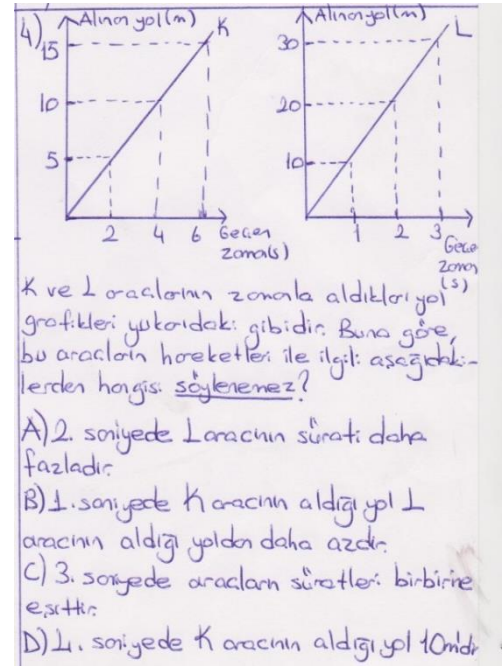 4)
Alınan yol(m)
K
15
10
5
2 4 6 Geçen
zaman(s)
Alınan yol(m)
L
30
20
10
1 2 3 Geçen
zaman
(s)
K ve L araçlarının zamanla aldıkları yol
grafikleri yukarıdaki gibidir. Buna göre,
bu araçların hareketleri ile ilgili aşağıdaki-
lerden hangisi söylenemez?
A) 2. saniyede L aracının sürati daha
fazladır.
B) 1. saniyede K aracının aldığı yol L
aracının aldığı yoldan daha azdır.
C) 3. saniyede araçların süratleri birbirine
eşittir.
D) 4. saniyede K aracının aldığı yol 10m'dir